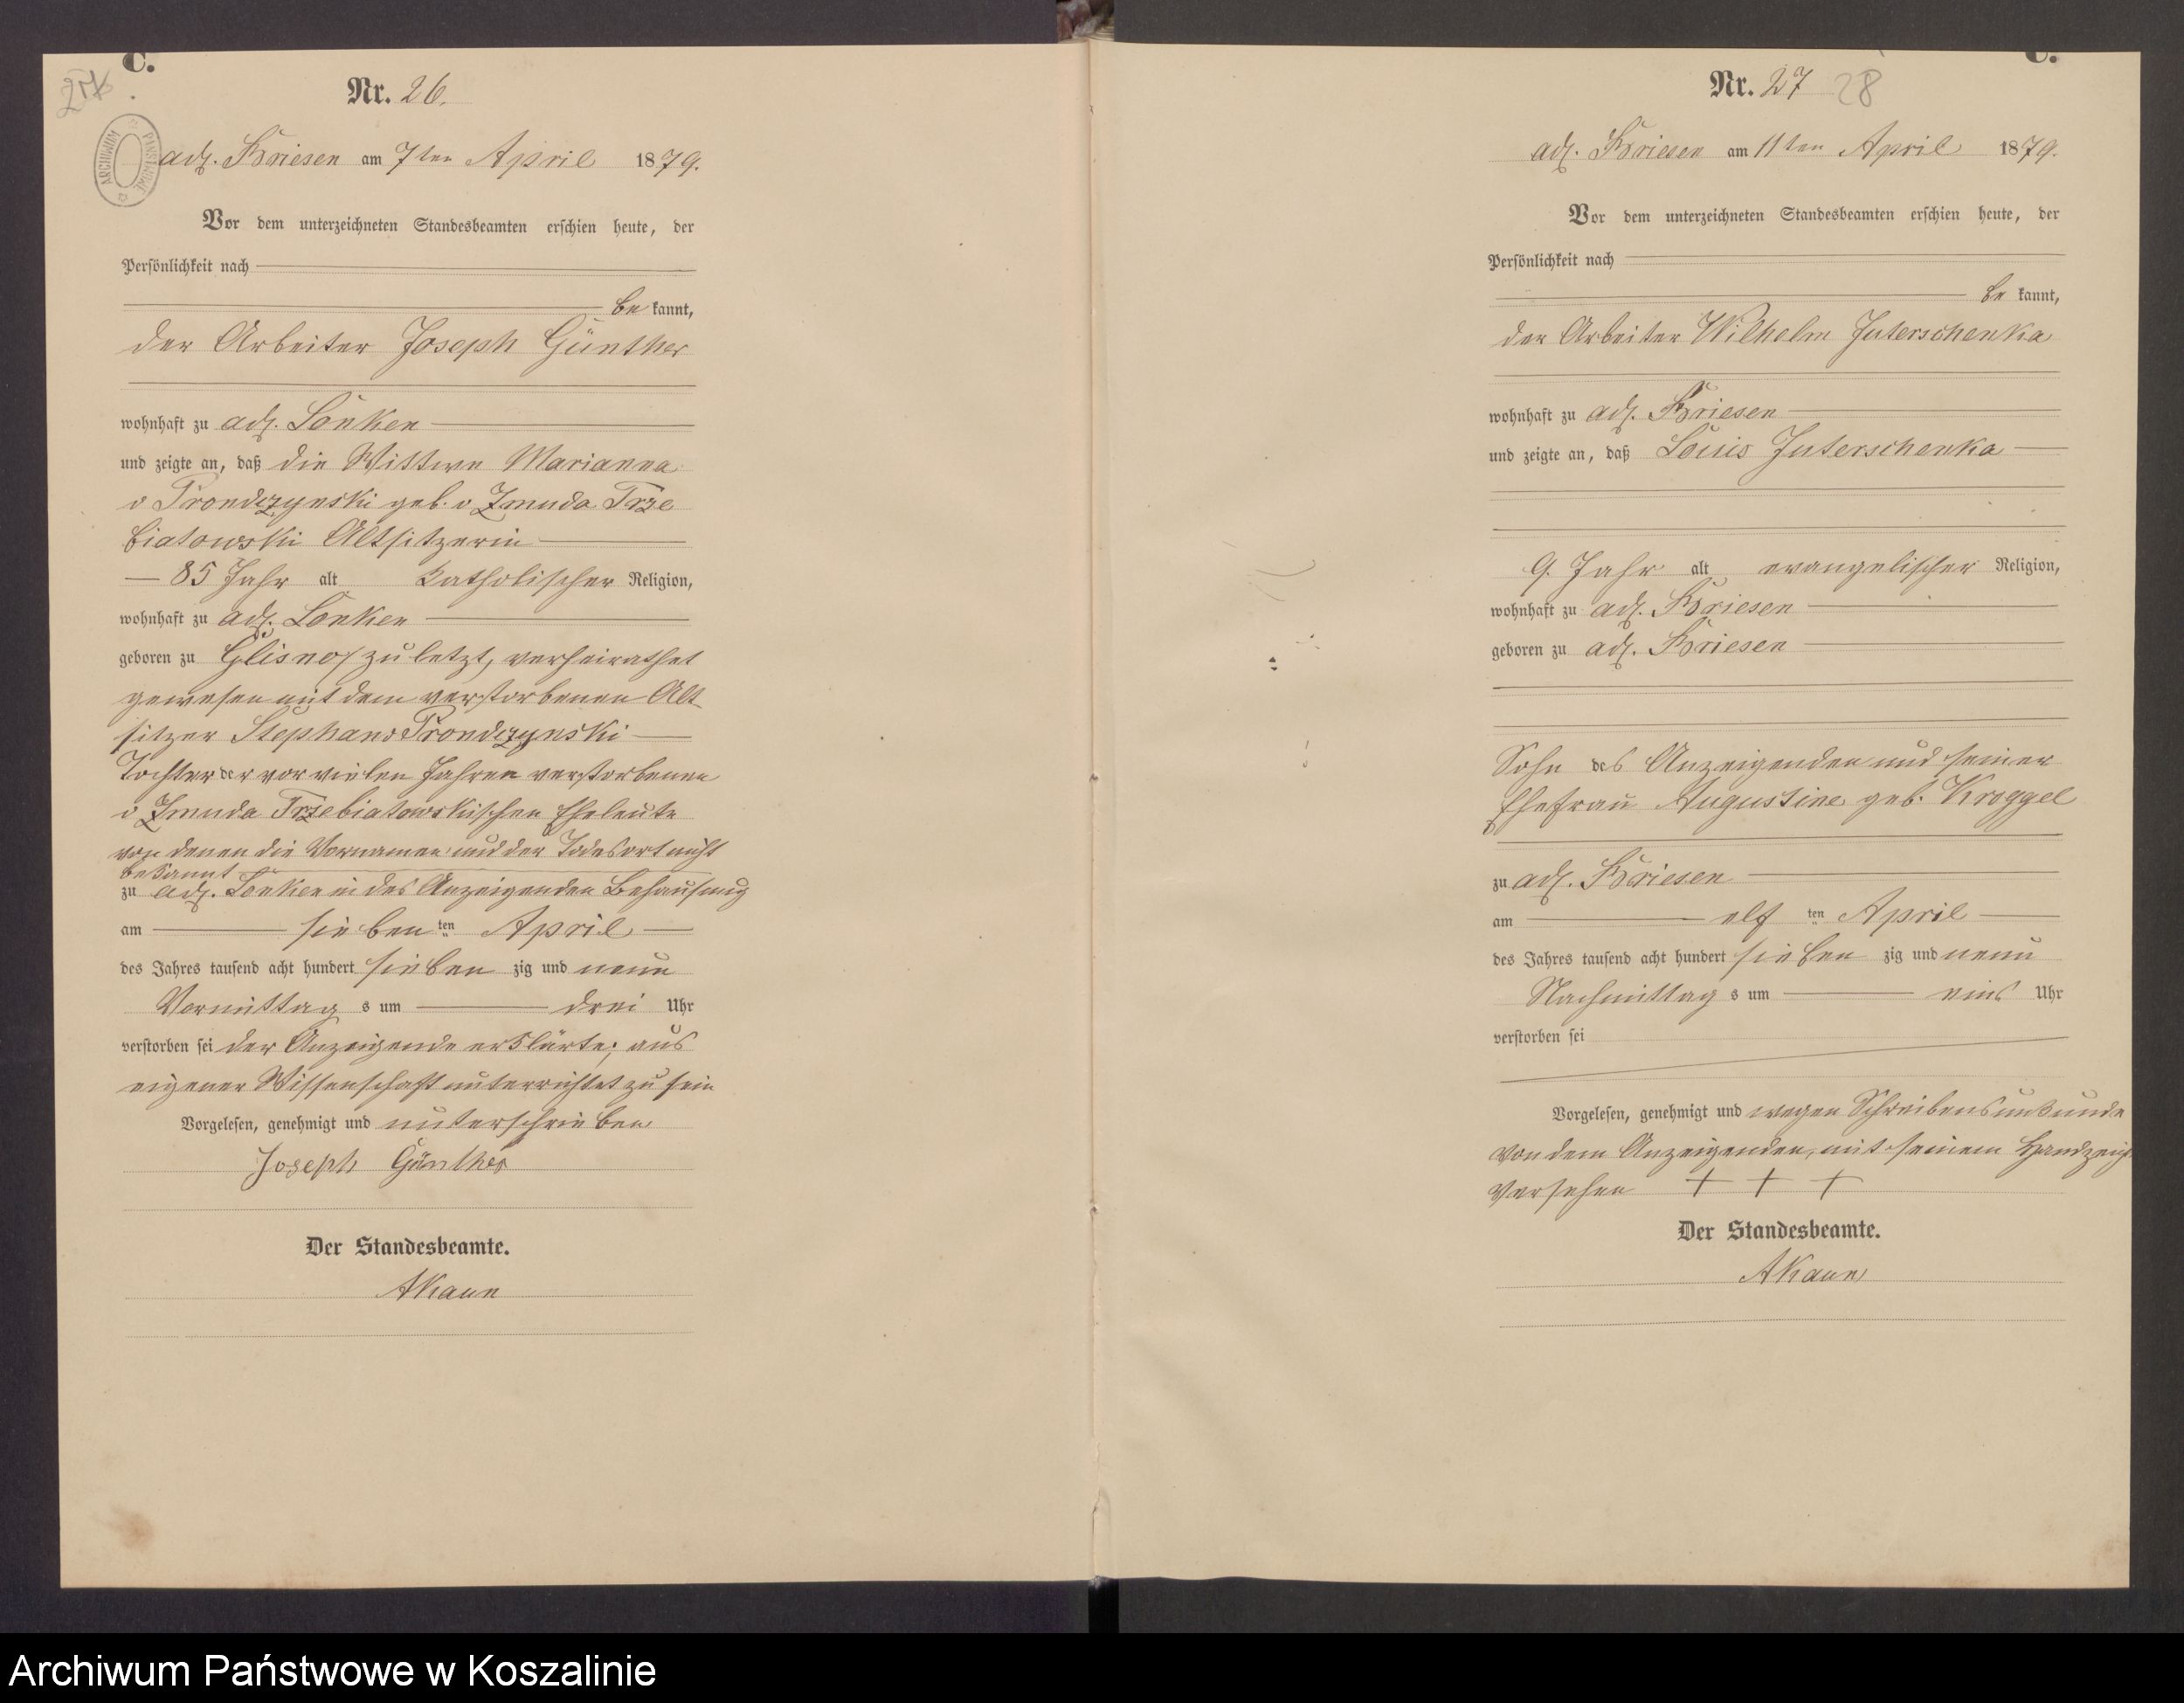 C.
Nr. 26.
ARCHIWUM PAŃSTWOWE
adl. Briesen am 7ten April 1879.
Vor dem unterzeichneten Standesbeamten erschien heute, der
Persönlichkeit nach
be kannt,
der Arbeiter Joseph Günther
wohnhaft zu adl. Lonken
und zeigte an, daß die Wittwe Marianna
v Prondzynski geb. v Zmuda Trze
biatowski Altsitzerin
85 Jahr alt katholischer Religion,
wohnhaft zu adl. Lonken
geboren zu Glisno, zuletzt, verheirathet
gewesen mit dem verstorbenen Alt
sitzer Stephan v Prondzynski
Tochter der vor vielen Jahren verstorbenen
v Zmuda Trzebiatowskischen Eheleute
von denen die Vornamen und der Todesort nicht
bekannt
zu adl. Lonken in des Anzeigenden Behausung
am sieben ten April
des Jahres tausend acht hundert sieben zig und neun
Vormittag s um drei Uhr
verstorben sei der Anzeigende erklärte, aus
eigener Wissenschaft unterrichtet zu sein
Vorgelesen, genehmigt und unterschrieben
Joseph Günther
Der Standesbeamte.
AKaun
C.
Nr. 27 28
adl. Briesen am 11ten April 1879.
Vor dem unterzeichneten Standesbeamten erschien heute, der
Persönlichkeit nach
be kannt,
der Arbeiter Wilhelm Juterschenka
wohnhaft zu adl. Briesen
und zeigte an, daß Louis Juterschenka
9. Jahr alt evangelischer Religion,
wohnhaft zu adl. Briesen
geboren zu adl. Briesen
Sohn des Anzeigenden und seiner
Ehefrau Augustine geb. Kroggel
zu adl. Briesen
am elf ten April
des Jahres tausend acht hundert sieben zig und neun
Nachmittag s um eins Uhr
verstorben sei
Vorgelesen, genehmigt und wegen Schreibensunkunde
von dem Anzeigenden, mit seinem Handzeich
versehen + + +
Der Standesbeamte.
AKaun
Archiwum Państwowe w Koszalinie